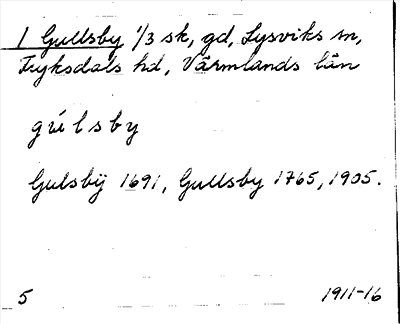 1 Gullsby 1/3 sk, gd, Lysviks sn,
Fryksdals hd, Värmlands län
gu̇lsby
Gulsbÿ 1691, Gullsby 1765, 1905.
5 1911-16